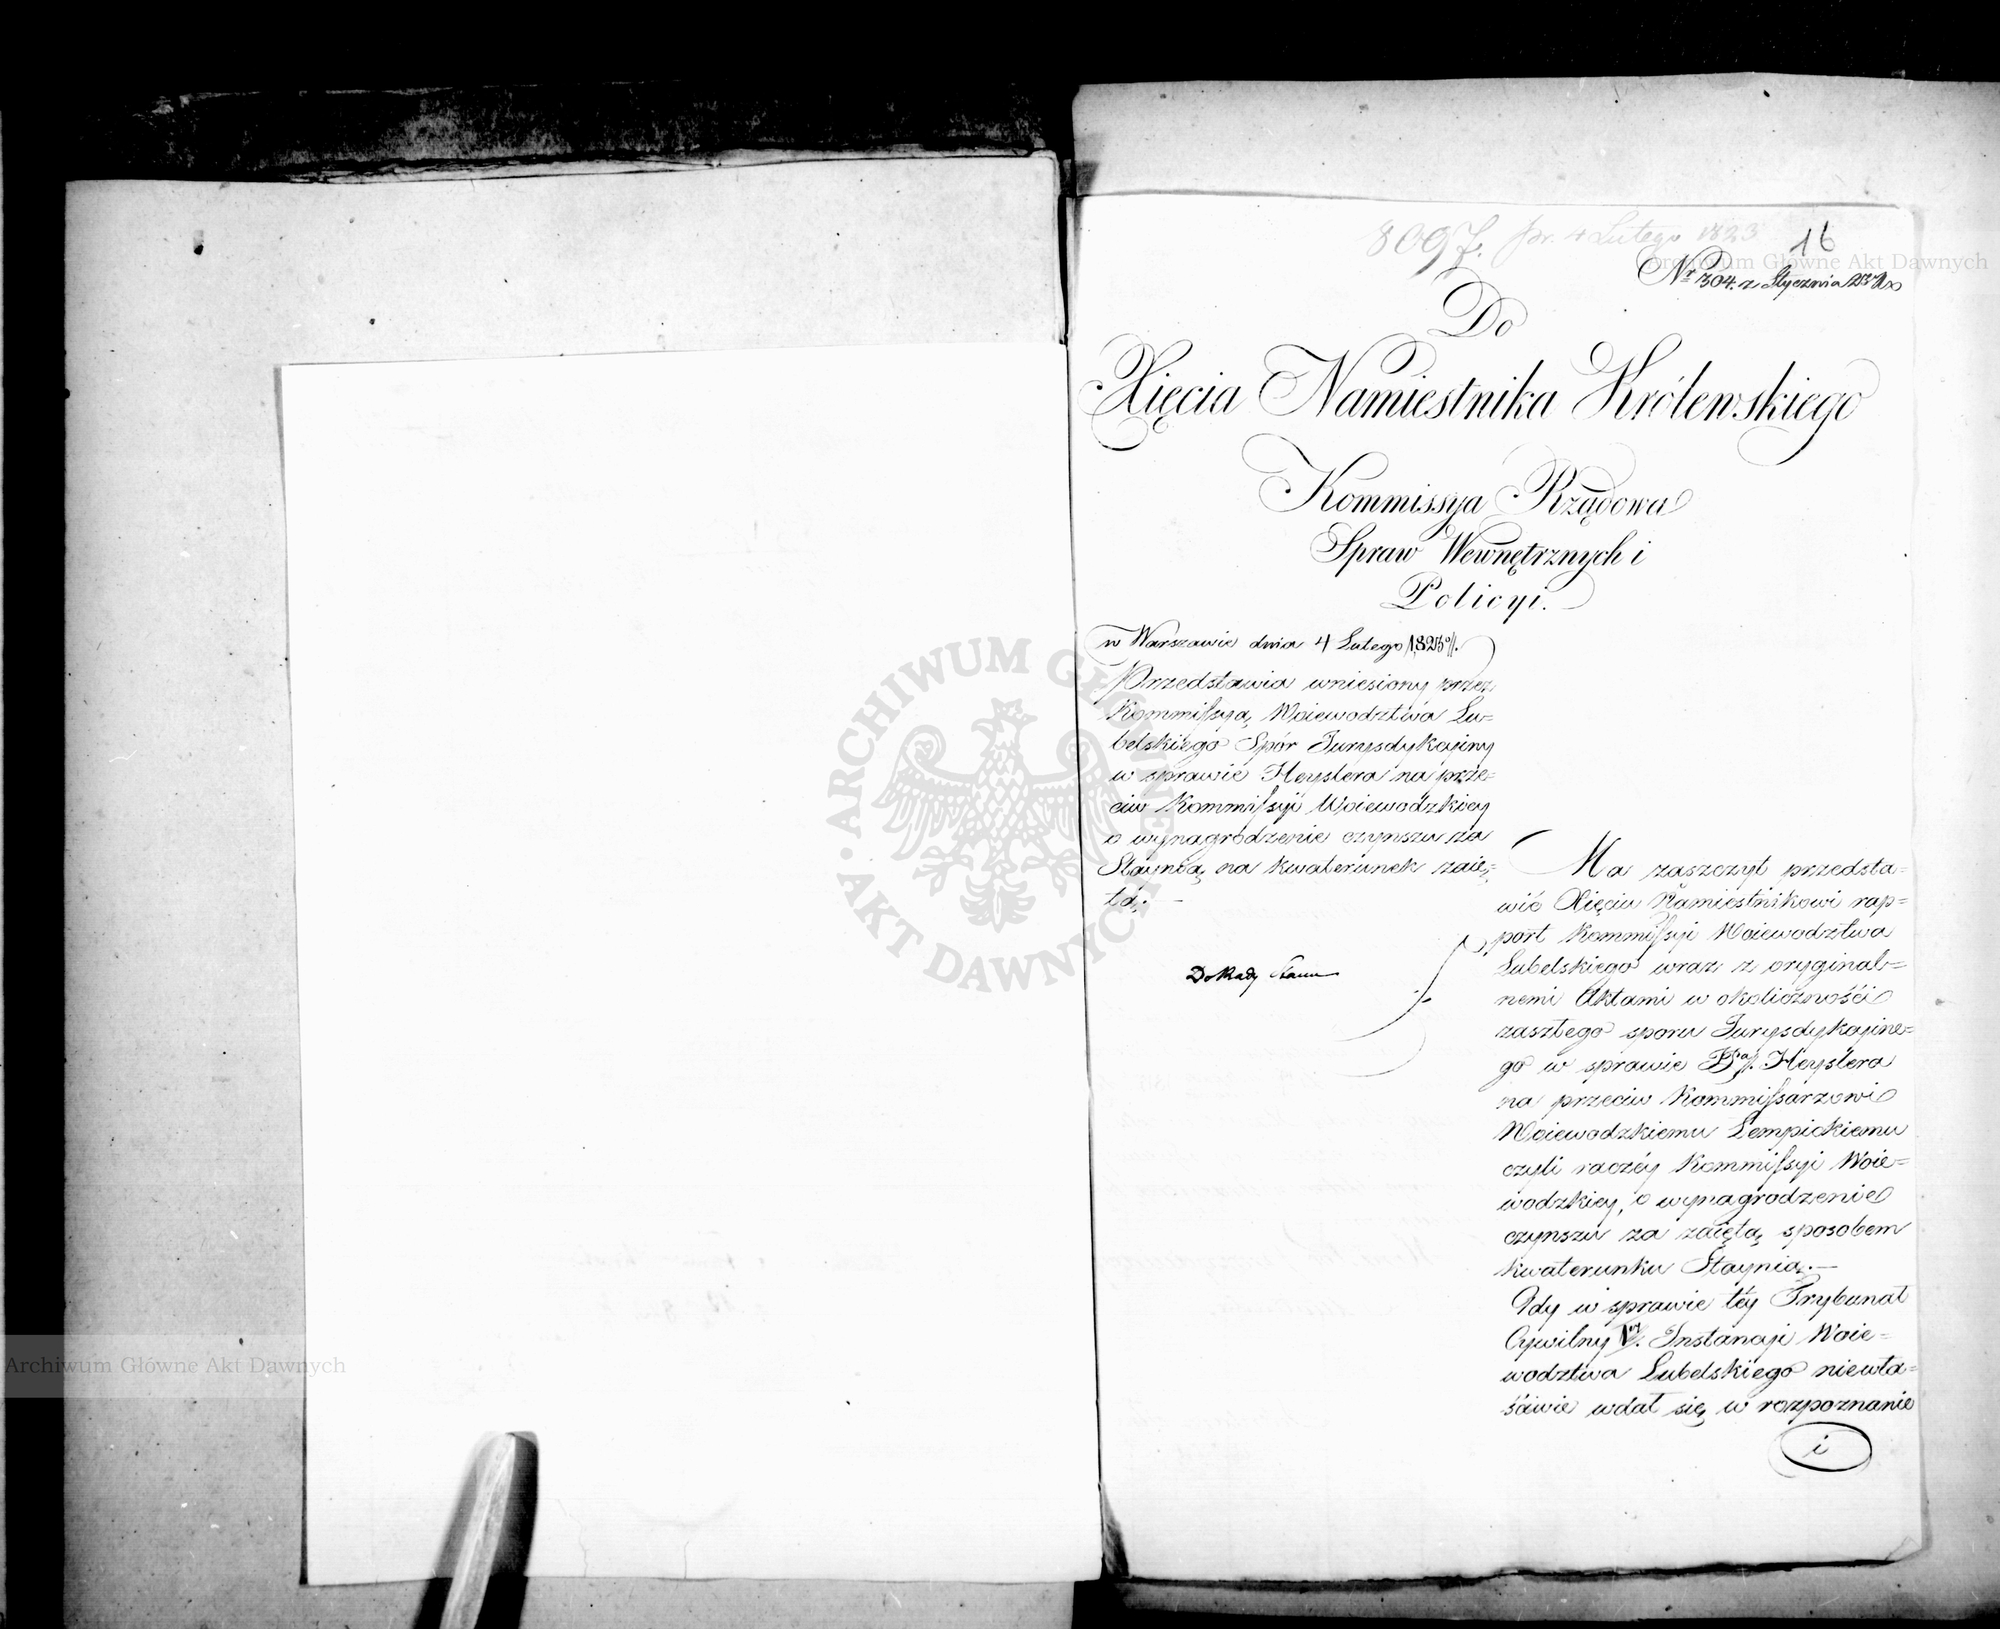 8097. pr. 4 Lutego 1823
16
Nr 304. z Stycznia 23
Do
Xięcia Namiestnika Królewskiego
Kommissya Rządowa
Spraw Wewnętrznych i
Policyi.
w Warszawie dnia 4 Lutego 1823
Przedstawia wniesiony przez
Kommissyą Woiewodztwa Lu=
belskiego Spór Jurysdykcyiny
w sprawie Heyslera na prze=
ciw Kommissyi Woiewodzkiey
o wynagrodzenie czynszu za
Staynią na kwaterunek zaię=
tą. —
Do Rady Stanu
Ma zaszczyt przedsta=
wić Xięciu Namiestnikowi rap=
port Kommissyi Woiewodztwa
Lubelskiego wraz z oryginal=
nemi Aktami w okoliczności
zaszłego sporu Jurysdykcyine=
go w sprawie Heyslera
na przeciw Kommissarzowi
Woiewodzkiemu Lempickiemu
czyli raczéy Kommissyi Woie=
wodzkiey, o wynagrodzenie
czynszu za zaiętą sposobem
kwaterunku Staynią. —
Gdy w sprawie téy Trybunał
Cywilny Instancyi Woie=
wodztwa Lubelskiego niewła=
ściwie wdał się w rozpoznanie
i
ARCHIWUM GŁÓWNE AKT DAWNYCH
Archiwum Główne Akt Dawnych
Archiwum Główne Akt Dawnych